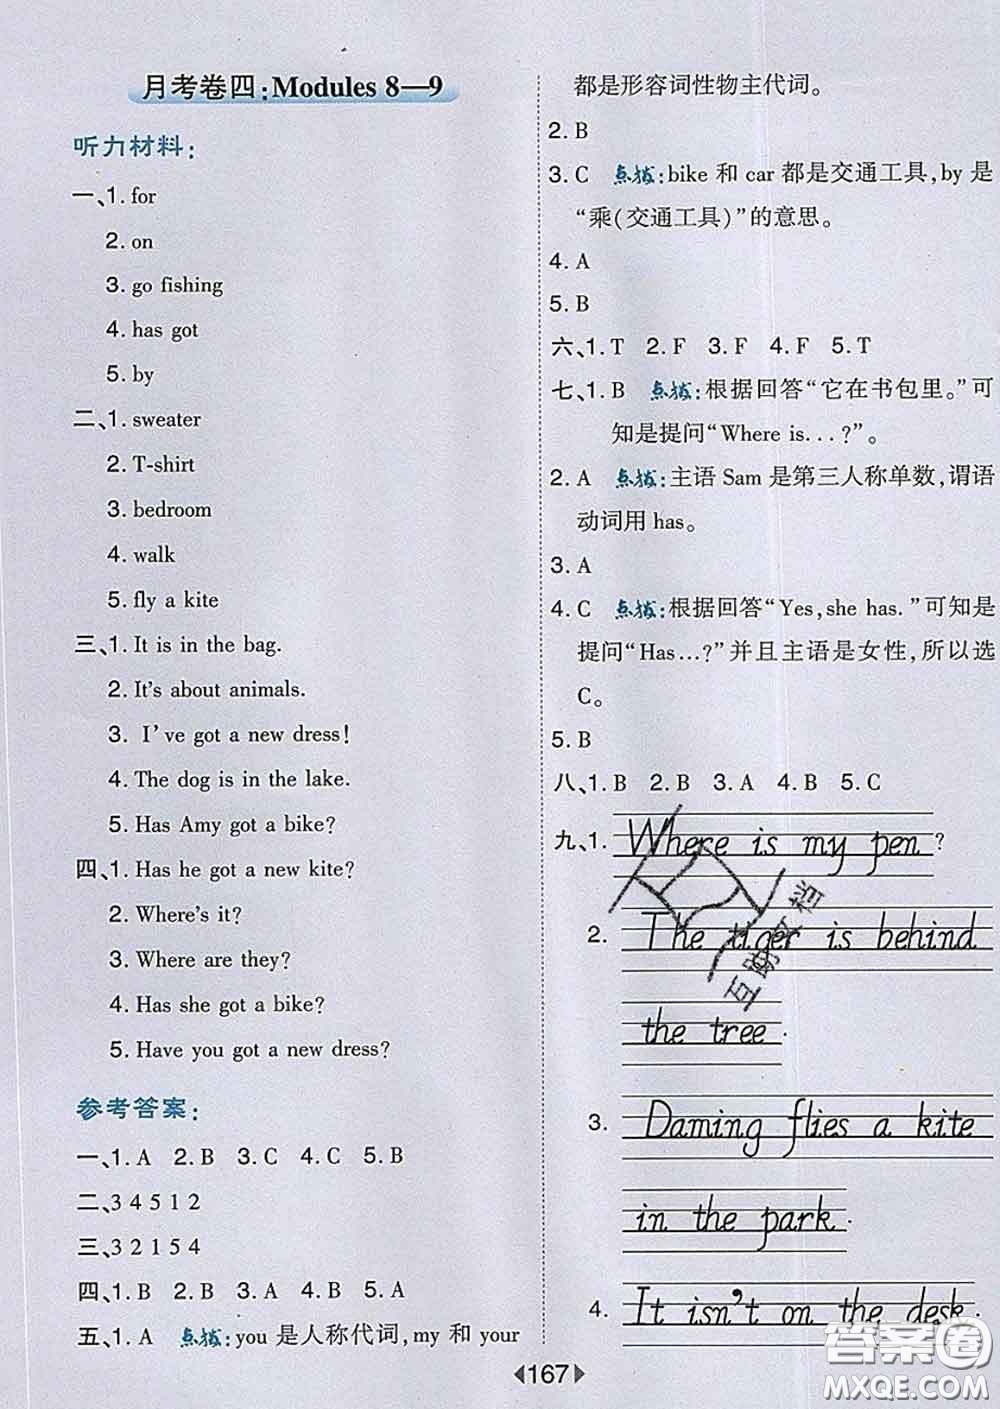 月考卷四:Modules 8—9
听力材料:
一、1. for
2. on
3. go fishing
4. has got
5. by
二、1. sweater
2. T-shirt
3. bedroom
4. walk
5. fly a kite
三、1. It is in the bag.
2. It's about animals.
3. I've got a new dress!
4. The dog is in the lake.
5. Has Amy got a bike?
四、1. Has he got a new kite?
2. Where's it?
3. Where are they?
4. Has she got a bike?
5. Have you got a new dress?
参考答案:
一、1. A 2. B 3. C 4. C 5. B
二、3 4 5 1 2
三、3 2 1 5 4
四、1. B 2. B 3. A 4. B 5. A
五、1. A 点拨:you 是人称代词,my 和 your
都是形容词性物主代词。
2. B
3. C 点拨:bike 和 car 都是交通工具,by 是
“乘(交通工具)”的意思。
4. A
5. B
六、1. T 2. F 3. F 4. F 5. T
七、1. B 点拨:根据回答“它在书包里。”可
知是提问“Where is. . . ?”。
2. A 点拨:主语 Sam 是第三人称单数,谓语
动词用 has。
3. A
4. C 点拨:根据回答“Yes, she has. ”可知是
提问“Has…?”并且主语是女性,所以选
C。
5. B
八、1. B 2. B 3. A 4. B 5. C
九、1. Where is my pen?
2. The tiger is behind
the tree.
3. Daming flies a kite
in the park.
4. It isn't on the desk.
互助文档
167
答案圈
MXQE.COM